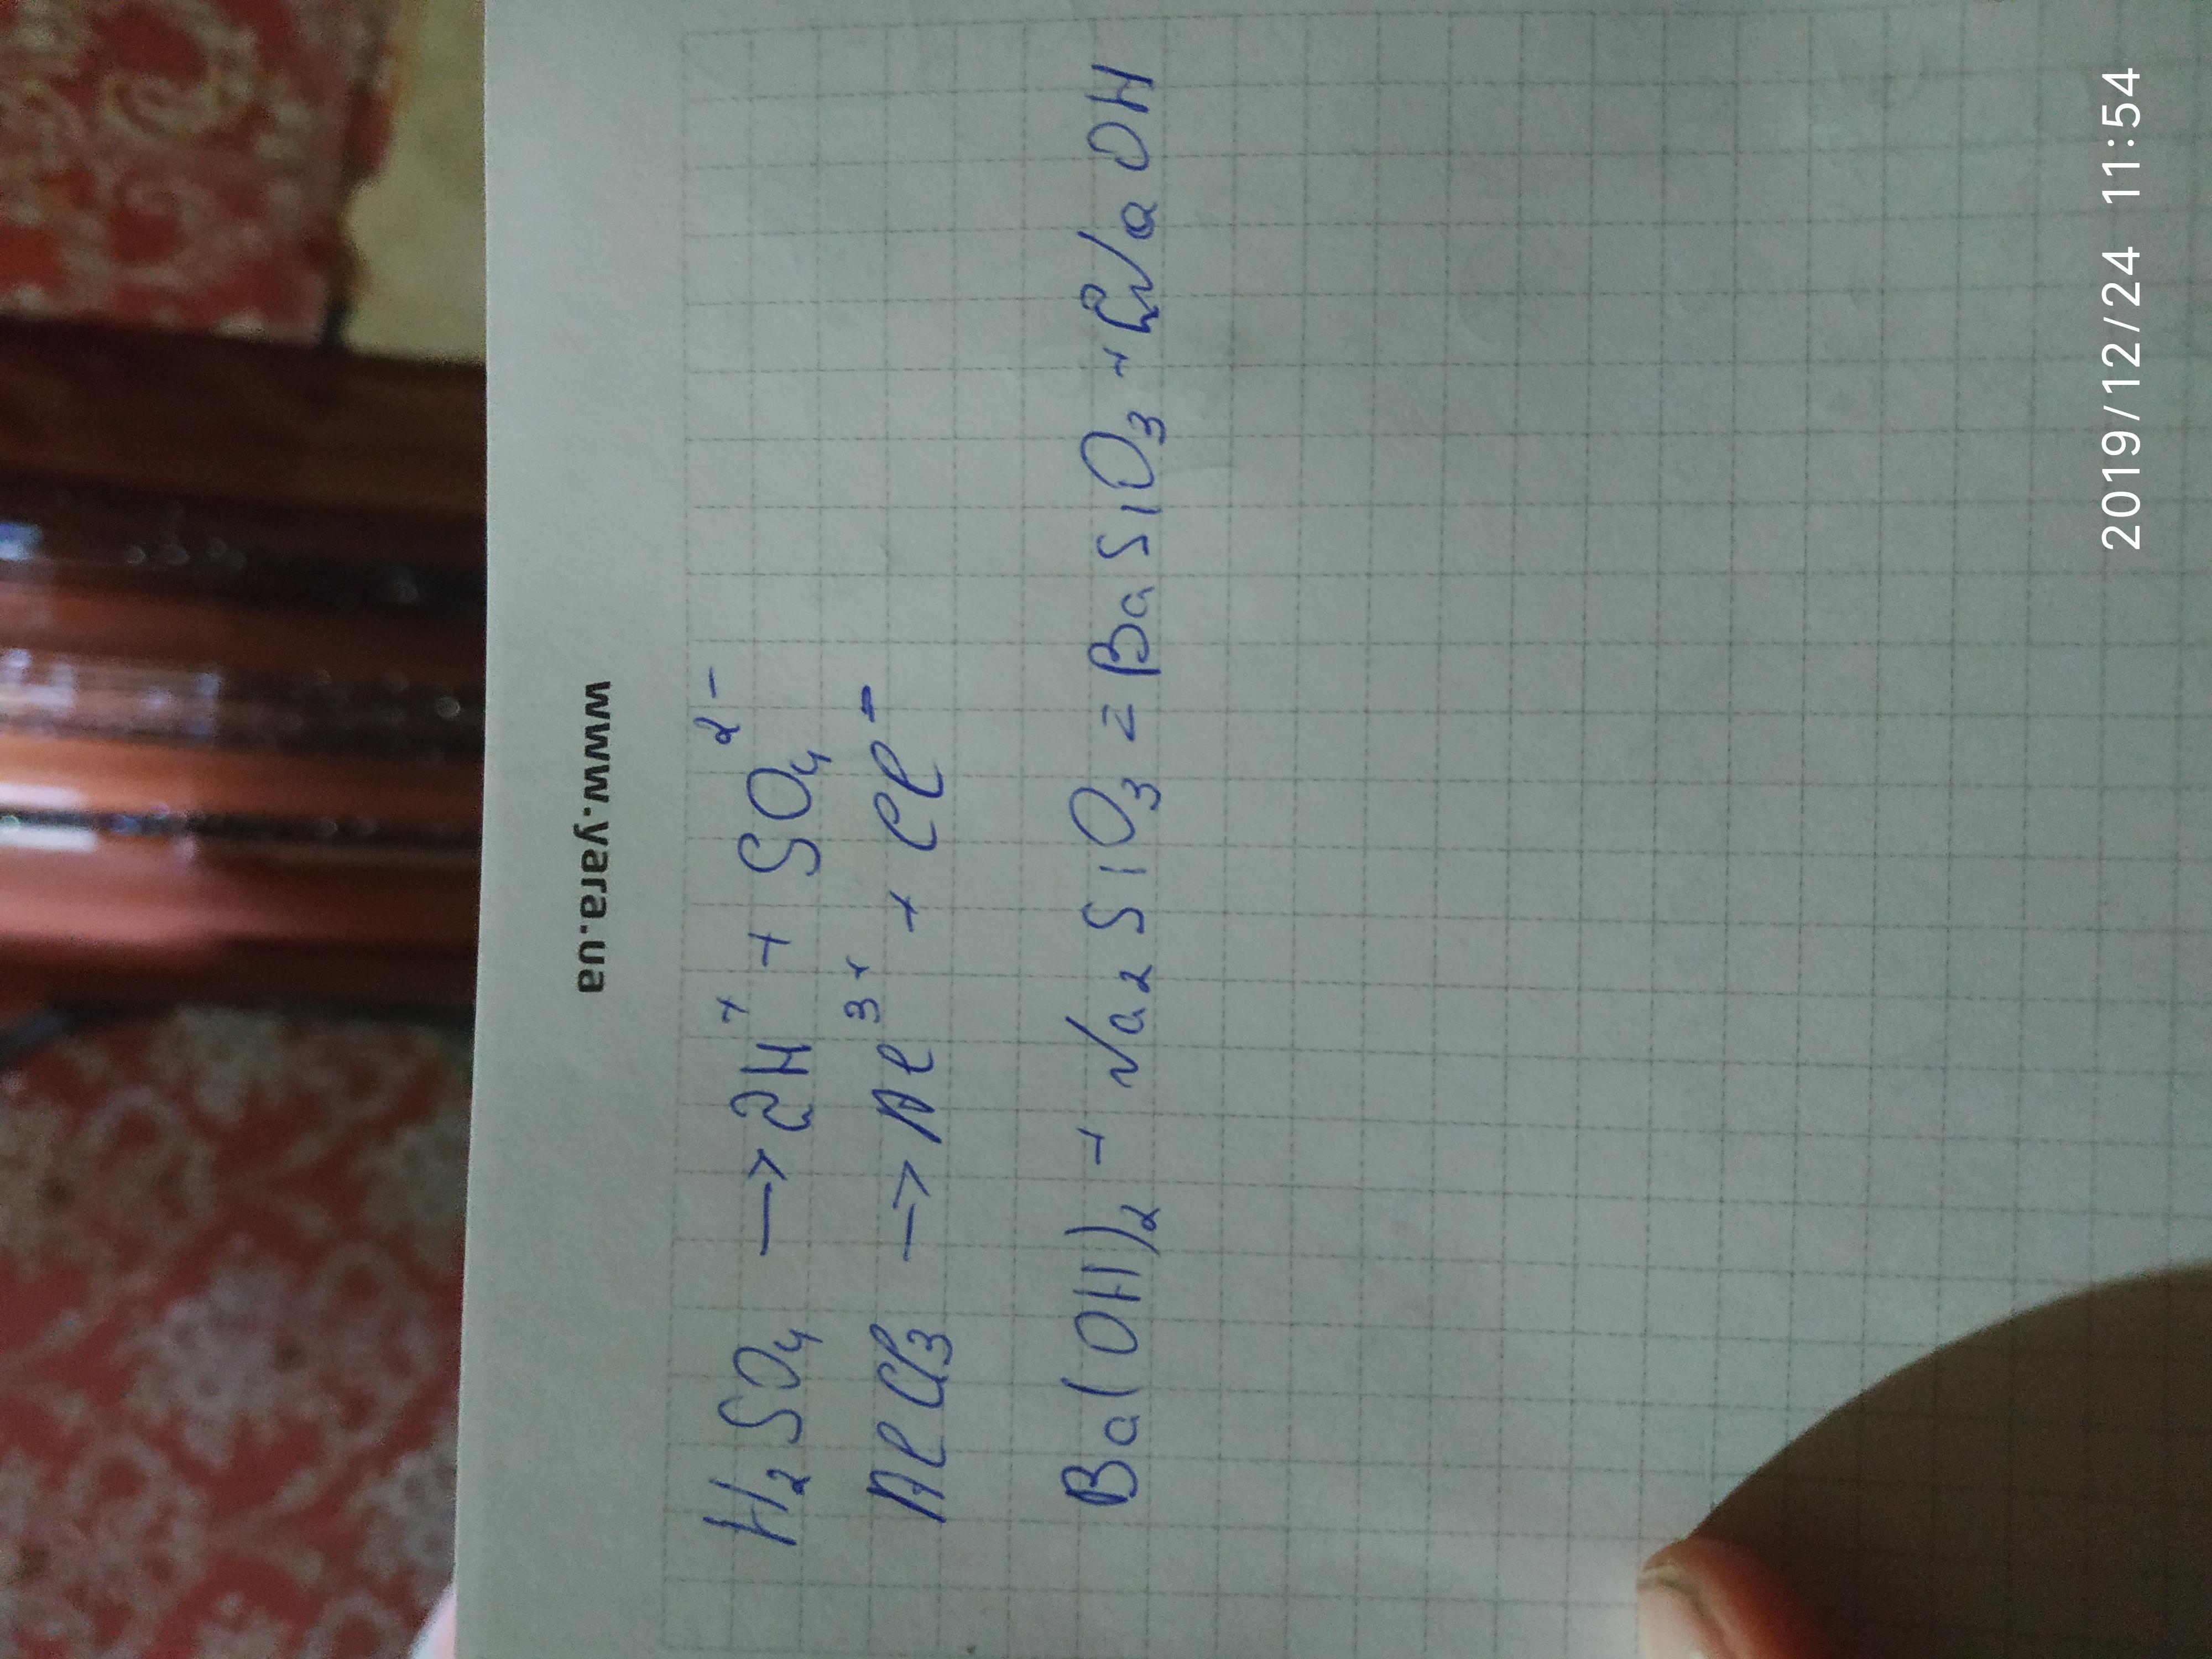 www.yara.ua
H₂SO₄ → 2H⁺ + SO₄²⁻
AlCl₃ → Al³⁺ + Cl⁻
Ba(OH)₂ + Na₂SiO₃ = BaSiO₃ + 2NaOH
2019/12/24 11:54